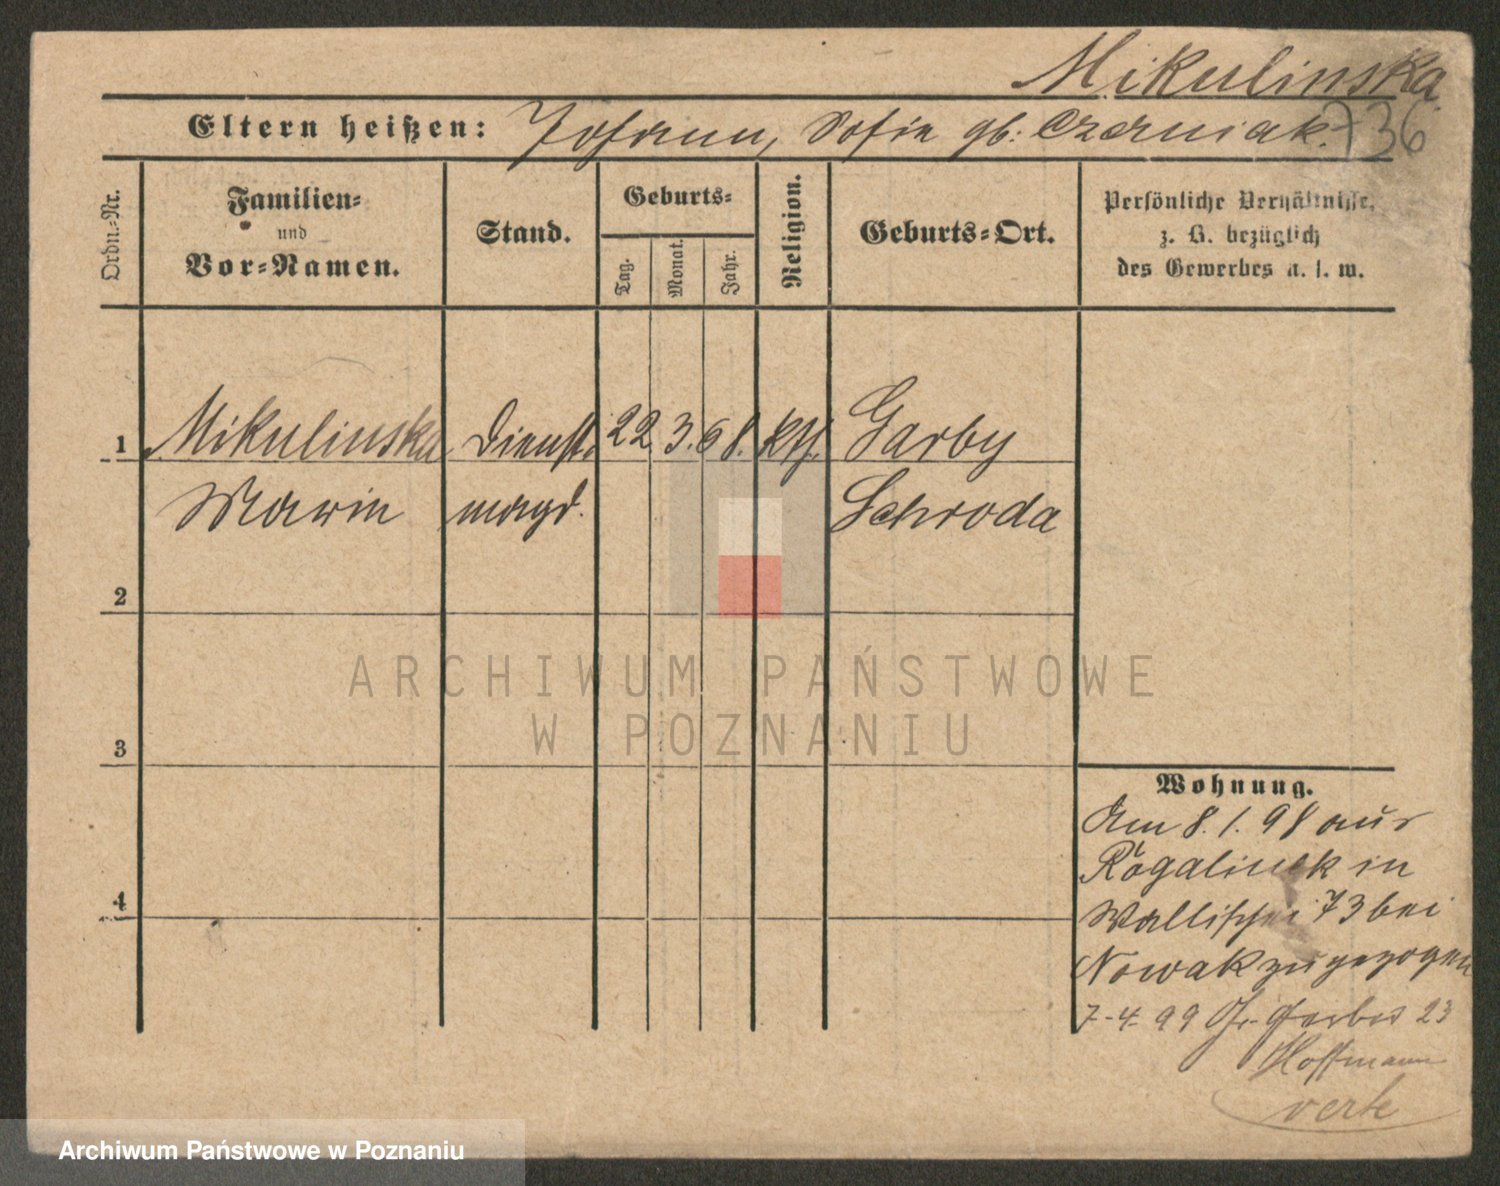 Mikulinska
Eltern heißen: Johann, Sofie gb: Czerniak.
736
Ordn.-Nr.
Familien-
und
Vor-Namen.
Stand.
Geburts-
Tag.
Monat.
Jahr.
Religion.
Geburts-Ort.
Persönliche Verhältnisse,
z. B. bezüglich
des Gewerbes u. s. w.
1 Mikulinska Dienst- 22. 3. 68. kth. Garby
Marie magd. Schroda
2
3
4
ARCHIWUM PAŃSTWOWE
W POZNANIU
Wohnung.
Am 8. 1. 98 aus
Rogalinek in
Wallischei 73 bei
Nowak zugezogen
7-4-99 Gr. Gerber 23
Hoffmann
Archiwum Państwowe w Poznaniu